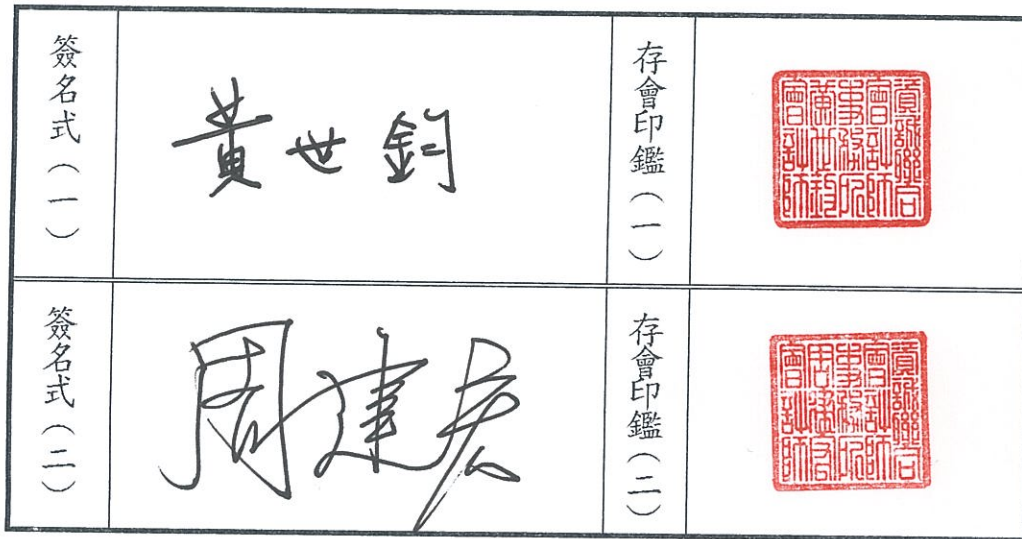 簽名式(一)
黃世鈞
存會印鑑(一)
資誠聯合
會計師
事務所
黃世鈞
會計師
簽名式(二)
周建宏
存會印鑑(二)
資誠聯合
會計師
事務所
周建宏
會計師